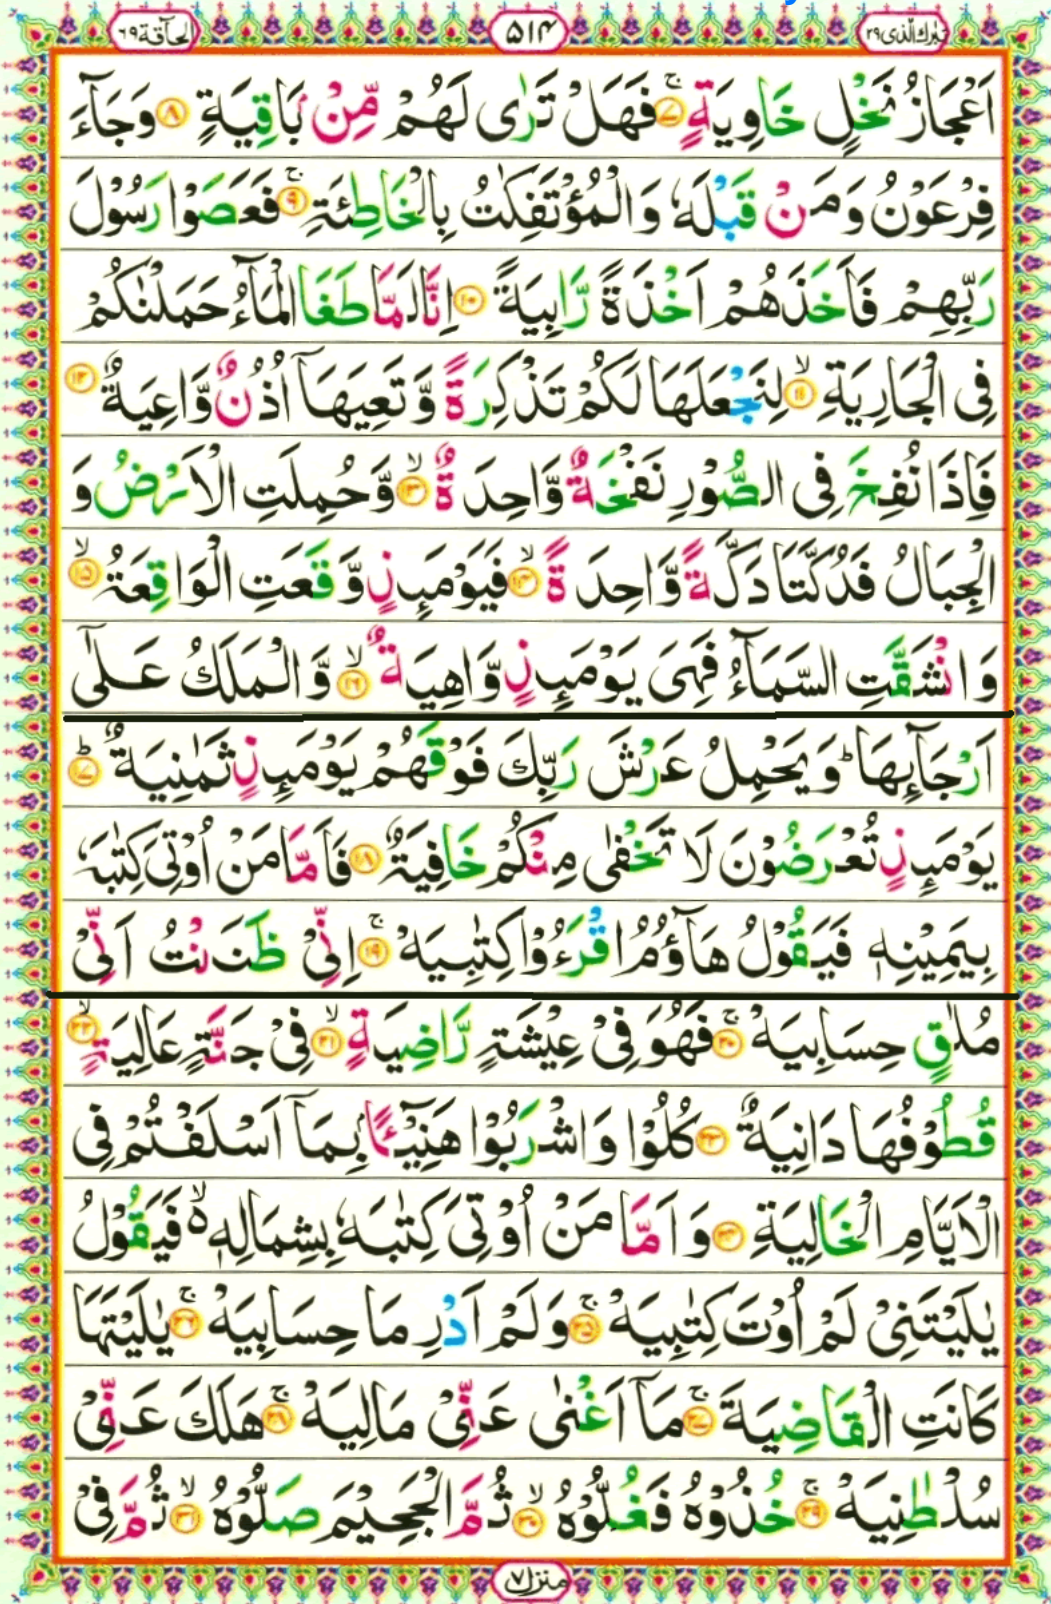 الحآقة ٦٩
٥١٤
تبٰرك الّذی ٢٩
اَعْجَازُ نَخْلٍ خَاوِيَةٍ ۚ‏﴿۷﴾ فَهَلْ تَرٰى لَهُمْ مِّنْۢ بَاقِيَةٍ ﴿۸﴾ وَجَآءَ
فِرْعَوْنُ وَمَنْ قَبْلَهٗ وَالْمُؤْتَفِكٰتُ بِالْخَاطِئَةِ ۚ﴿۹﴾ فَعَصَوْا رَسُوْلَ
رَبِّهِمْ فَاَخَذَهُمْ اَخْذَةً رَّابِيَةً ﴿۱۰﴾ اِنَّا لَمَّا طَغَا الْمَآءُ حَمَلْنٰكُمْ
فِى الْجَارِيَةِ ۙ﴿۱۱﴾ لِنَجْعَلَهَا لَكُمْ تَذْكِرَةً وَّتَعِيَهَآ اُذُنٌ وَّاعِيَةٌ ﴿۱۲﴾
فَاِذَا نُفِخَ فِى الصُّوْرِ نَفْخَةٌ وَّاحِدَةٌ ۙ﴿۱۳﴾ وَّحُمِلَتِ الْاَرْضُ وَ
الْجِبَالُ فَدُكَّتَا دَكَّةً وَّاحِدَةً ۙ﴿۱۴﴾ فَيَوْمَئِذٍ وَّقَعَتِ الْوَاقِعَةُ ۙ﴿۱۵﴾
وَانْشَقَّتِ السَّمَآءُ فَهِىَ يَوْمَئِذٍ وَّاهِيَةٌ ۙ﴿۱۶﴾ وَّالْمَلَكُ عَلٰٓى
اَرْجَآئِهَا ؕ وَيَحْمِلُ عَرْشَ رَبِّكَ فَوْقَهُمْ يَوْمَئِذٍ ثَمٰنِيَةٌ ؕ﴿۱۷﴾
يَوْمَئِذٍ تُعْرَضُوْنَ لَا تَخْفٰى مِنْكُمْ خَافِيَةٌ ﴿۱۸﴾ فَاَمَّا مَنْ اُوْتِىَ كِتٰبَهٗ
بِيَمِيْنِهٖ فَيَقُوْلُ هَآؤُمُ اقْرَءُوْا كِتٰبِيَهْ ۚ﴿۱۹﴾ اِنِّىْ ظَنَنْتُ اَنِّىْ
مُلٰقٍ حِسَابِيَهْ ۚ﴿۲۰﴾ فَهُوَ فِىْ عِيْشَةٍ رَّاضِيَةٍ ۙ﴿۲۱﴾ فِىْ جَنَّةٍ عَالِيَةٍ ۙ﴿۲۲﴾
قُطُوْفُهَا دَانِيَةٌ ﴿۲۳﴾ كُلُوْا وَاشْرَبُوْا هَنِيْٓئًۢا بِمَآ اَسْلَفْتُمْ فِى
الْاَيَّامِ الْخَالِيَةِ ﴿۲۴﴾ وَاَمَّا مَنْ اُوْتِىَ كِتٰبَهٗ بِشِمَالِهٖ ۙ فَيَقُوْلُ
يٰلَيْتَنِىْ لَمْ اُوْتَ كِتٰبِيَهْ ۚ﴿۲۵﴾ وَلَمْ اَدْرِ مَا حِسَابِيَهْ ۚ﴿۲۶﴾ يٰلَيْتَهَا
كَانَتِ الْقَاضِيَةَ ۚ﴿۲۷﴾ مَآ اَغْنٰى عَنِّىْ مَالِيَهْ ۚ﴿۲۸﴾ هَلَكَ عَنِّىْ
سُلْطٰنِيَهْ ۚ﴿۲۹﴾ خُذُوْهُ فَغُلُّوْهُ ۙ﴿۳۰﴾ ثُمَّ الْجَحِيْمَ صَلُّوْهُ ۙ﴿۳۱﴾ ثُمَّ فِىْ
منزل ٧